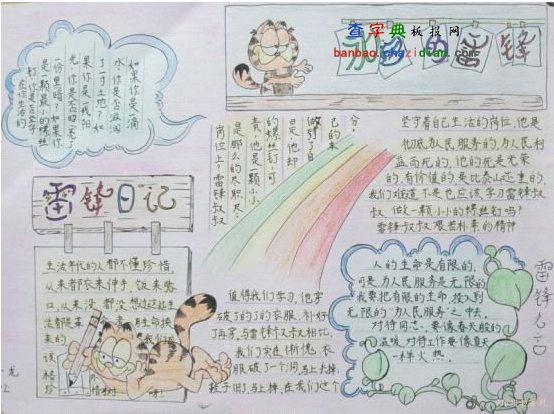 查字典板报网
banbao.chazidian.com
的雷锋
如果你是一滴
水,你是否滋润
了一寸土地?如
果你是一线阳
光,你是否照亮了
一份黑暗?如果你
是一颗最小的螺丝
钉,你是否坚守
在你生活的
岗位上?雷锋叔叔
是那么的尽职尽
责,他是一颗小小
的螺丝钉,可
是,他却
做到了自
己的本
分。
坚守着自己生活的岗位,他是
彻底为人民服务的,为人民利
益而死的,他的死是光荣
的,有价值的,是比泰山还重的
我们难道不是也应该学习雷锋叔
叔,做一颗小小的螺丝钉吗?
雷锋叔叔艰苦朴素的精神
值得我们学习,他穿
破了的了的衣服,补好
了再穿,与雷锋叔叔相比,
我们实在惭愧,衣
服破了一个洞,马上去掉,
鞋子旧,马上掉,在我们这个
雷锋日记
生活年代的人都不懂珍惜,
从来都衣来伸手,饭来张
口,从来没都没想过这些生
活都是生命换
来的
该
珍惜
人的生命是有限的,
可是,为人民服务是无限的,
我要把有限的生命,投入到
无限的"为人民服务"之中去。
对待同志,要像春天般的
温暖,对待工作要像夏天
一样火热。
雷锋